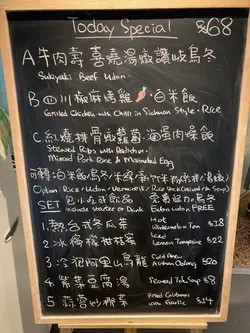 Today Special $68
A 牛肉壽喜燒湯燉讚岐烏冬
Sukiyaki Beef Udon
B 四川椒麻雞 · 白米飯
Grilled Chicken with Chili in Sichuan Style · Rice
C 紅燒排骨燉蘿蔔 · 滷蛋肉燥飯
Stewed Ribs with Radish
Minced Pork Rice & Marinated Egg
Option: Rice / Udon / Vermicelli / Rice Stick
SET 包小吃或飲品
include starter or Drink
免費加麵烏冬
Extra Udon FREE
1. 熱合桃冬瓜茶 Hot Wintermelon Tea $18
2. 冰檸檬柑菇蜜 Iced Lemon Tangerine $22
3. 冷泡阿里山烏龍 Cold Brew Alishan Oolong $20
4. 紫菜豆腐湯 Seaweed Tofu Soup $8
5. 蒜蓉炒椰菜 Fried Cabbage with Garlic $14